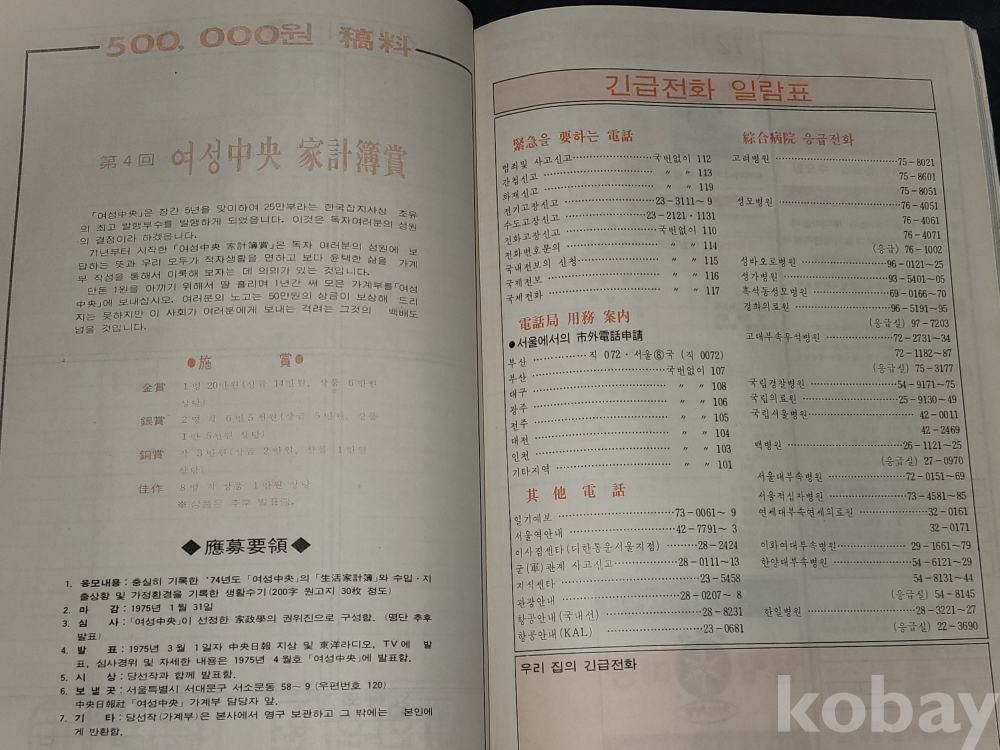 500,000원 稿料
第4回 여성中央 家計簿賞
「여성中央」은 창간 5년을 맞이하여 25만부라는 한국잡지사상 초유
의 최고 발행부수를 발행하게 되었읍니다. 이것은 독자여러분의 성원
의 결정이라 하겠읍니다.
71년부터 시작한 「여성中央 家計簿賞」은 독자 여러분의 성원에 보
답하는 뜻과 우리 모두가 적자생활을 면하고 보다 윤택한 삶을 가계
부 작성을 통해서 이룩해 보자는 데 의의가 있는 것입니다.
단돈 1원을 아끼기 위해서 땀 흘리며 1년간 써 모은 가계부를 「여성
中央」에 보내십시오. 여러분의 노고는 50만원의 상금이 보상해 드리
지는 못하지만 이 사회가 여러분에게 보내는 격려는 그것의 백배도
넘을 것입니다.
●施 賞●
金賞 1명 20만원(상금 14만원, 상품 6만원
상당)
銀賞 2명 각 6만5천원(상금 5만원, 상품
1만5천원 상당)
銅賞 각 3만원(상금 2만원, 상품 1만원
상당)
佳作 8명 각 상품 1만원 상당
※상품은 추후 발표함.
◆應募要領◆
1. 응모내용 : 충실히 기록한 '74년도 「여성中央」의 「生活家計簿」와 수입·지
출상황 및 가정환경을 기록한 생활수기(200字 원고지 30枚 정도)
2. 마 감 : 1975年 1월 31일
3. 심 사 : 「여성中央」이 선정한 家政學의 권위진으로 구성함. (명단 추후
발표)
4. 발 표 : 1975年 3월 1일자 中央日報 지상 및 東洋라디오, TV에 발
표, 심사경위 및 자세한 내용은 1975年 4월호 「여성中央」에 발표함.
5. 시 상 : 당선작과 함께 발표함.
6. 보낼곳 : 서울특별시 서대문구 서소문동 58~9 (우편번호 120)
中央日報社 「여성中央」 가계부 담당자 앞.
7. 기 타 : 당선작(가계부)은 본사에서 영구 보관하고 그 밖에는 본인에
게 반환함.
긴급전화 일람표
緊急을 要하는 電話
범죄및 사고신고 국번없이 112
간첩신고 〃 〃 113
화재신고 〃 〃 119
전기고장신고 23-3111~9
수도고장신고 23-2121·1131
전화고장신고 국번없이 110
전화번호문의 〃 〃 114
국내전보의 신청 〃 〃 115
국제전보 〃 〃 116
국제전화 〃 〃 117
電話局 用務 案内
●서울에서의 市外電話申請
부산 직 072·서울⑧국 (직 0072)
부산 국번없이 107
대구 〃 〃 108
광주 〃 〃 106
전주 〃 〃 105
대전 〃 〃 104
인천 〃 〃 103
기타지역 〃 〃 101
其 他 電 話
일기예보 73-0061~9
서울역안내 42-7791~3
이사짐센타(대한통운서울지점) 28-2424
군(軍)관계 사고신고 28-0111~13
지식센타 23-5458
관광안내 28-0207~8
항공안내(국내선) 28-8231
항공안내(KAL) 23-0681
綜合病院 응급전화
고려병원 75-8021
75-8601
75-8051
성모병원 76-4051
76-4061
76-4071
(응급) 76-1002
성바오로병원 96-0121~25
성가병원 93-5401~05
흑석동성모병원 69-0166~70
경희의료원 96-5191~95
(응급실) 97-7203
고대부속우석병원 72-2731~34
72-1182~87
(응급실) 75-3177
국립경찰병원 54-9171~75
국립의료원 25-9130~49
국립서울병원 42-0011
42-2469
백병원 26-1121~25
(응급실) 27-0970
서울대부속병원 72-0151~69
서울적십자병원 73-4581~85
연세대부속연세의료원 32-0161
32-0171
이화여대부속병원 29-1661~79
한양대부속병원 54-6121~29
54-8131~44
(응급실) 54-8145
한일병원 28-3221~27
(응급실) 22-3690
우리 집의 긴급전화
kobay